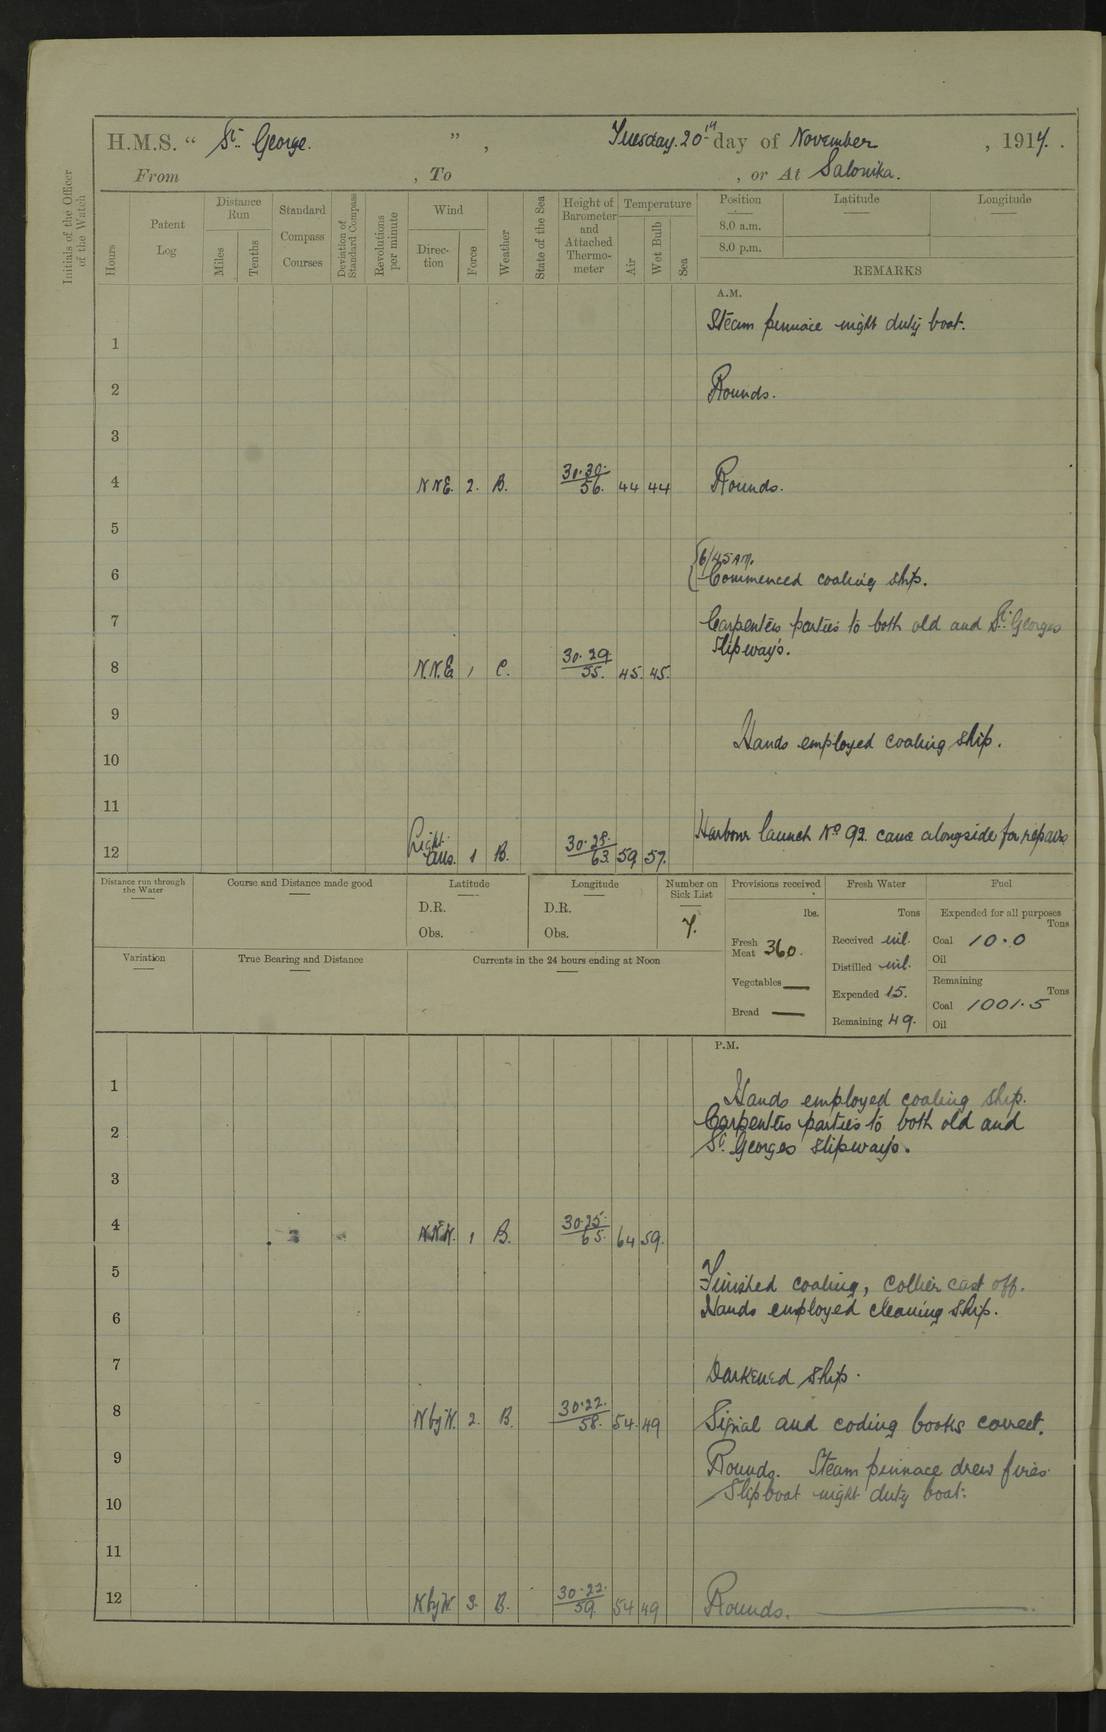 H.M.S. “ St. George. ” , Tuesday. 20th day of November , 1917.
From , To , or At Salonika.
Initials of the Officer of the Watch
Hours
Patent Log
Distance Run
Miles
Tenths
Standard Compass Courses
Deviation of Standard Compass
Revolutions per minute
Wind
Direc-tion
Force
Weather
State of the Sea
Height of Barometer and Attached Thermo-meter
Temperature
Air
Wet Bulb
Sea
Position
8.0 a.m.
8.0 p.m.
Latitude
Longitude
REMARKS
A.M.
Steam pinnace night duty boat.
1
2 Rounds.
3
4 N N E. 2. B. 30.30. 56. 44 44 Rounds.
5
6/45 AM.
6 Commenced coaling ship.
7 Carpenters parties to both old and St. Georges
slipways.
8 N.N.E. 1 C. 30.29 55. 45. 45.
9
Hands employed coaling ship.
10
11
Harbour launch No 92. came alongside for repairs
12 Light airs. 1 B. 30.28. 63. 59 57.
Distance run through the Water
Course and Distance made good
Latitude
D.R.
Obs.
Longitude
D.R.
Obs.
Number on Sick List
7.
Provisions received
lbs.
Fresh Meat 360.
Vegetables —
Bread —
Fresh Water
Tons
Received nil.
Distilled nil.
Expended 15.
Remaining 49.
Fuel
Expended for all purposes
Tons
Coal 10.0
Oil
Remaining
Tons
Coal 1001.5
Oil
Variation
True Bearing and Distance
Currents in the 24 hours ending at Noon
P.M.
1 Hands employed coaling ship.
2 Carpenters parties to both old and
St. Georges slipways.
3
4 N.N.W. 1 B. 30.25. 65. 64 59.
5 Finished coaling, Collier cast off.
6 Hands employed cleaning ship.
7 Darkened ship.
8 N by W. 2. B. 30.22. 58. 54. 49 Signal and coding books correct.
9 Rounds. Steam pinnace drew fires.
10 Slipboat night duty boat.
11
12 N by W. 3. B. 30.22. 59. 54 49 Rounds.